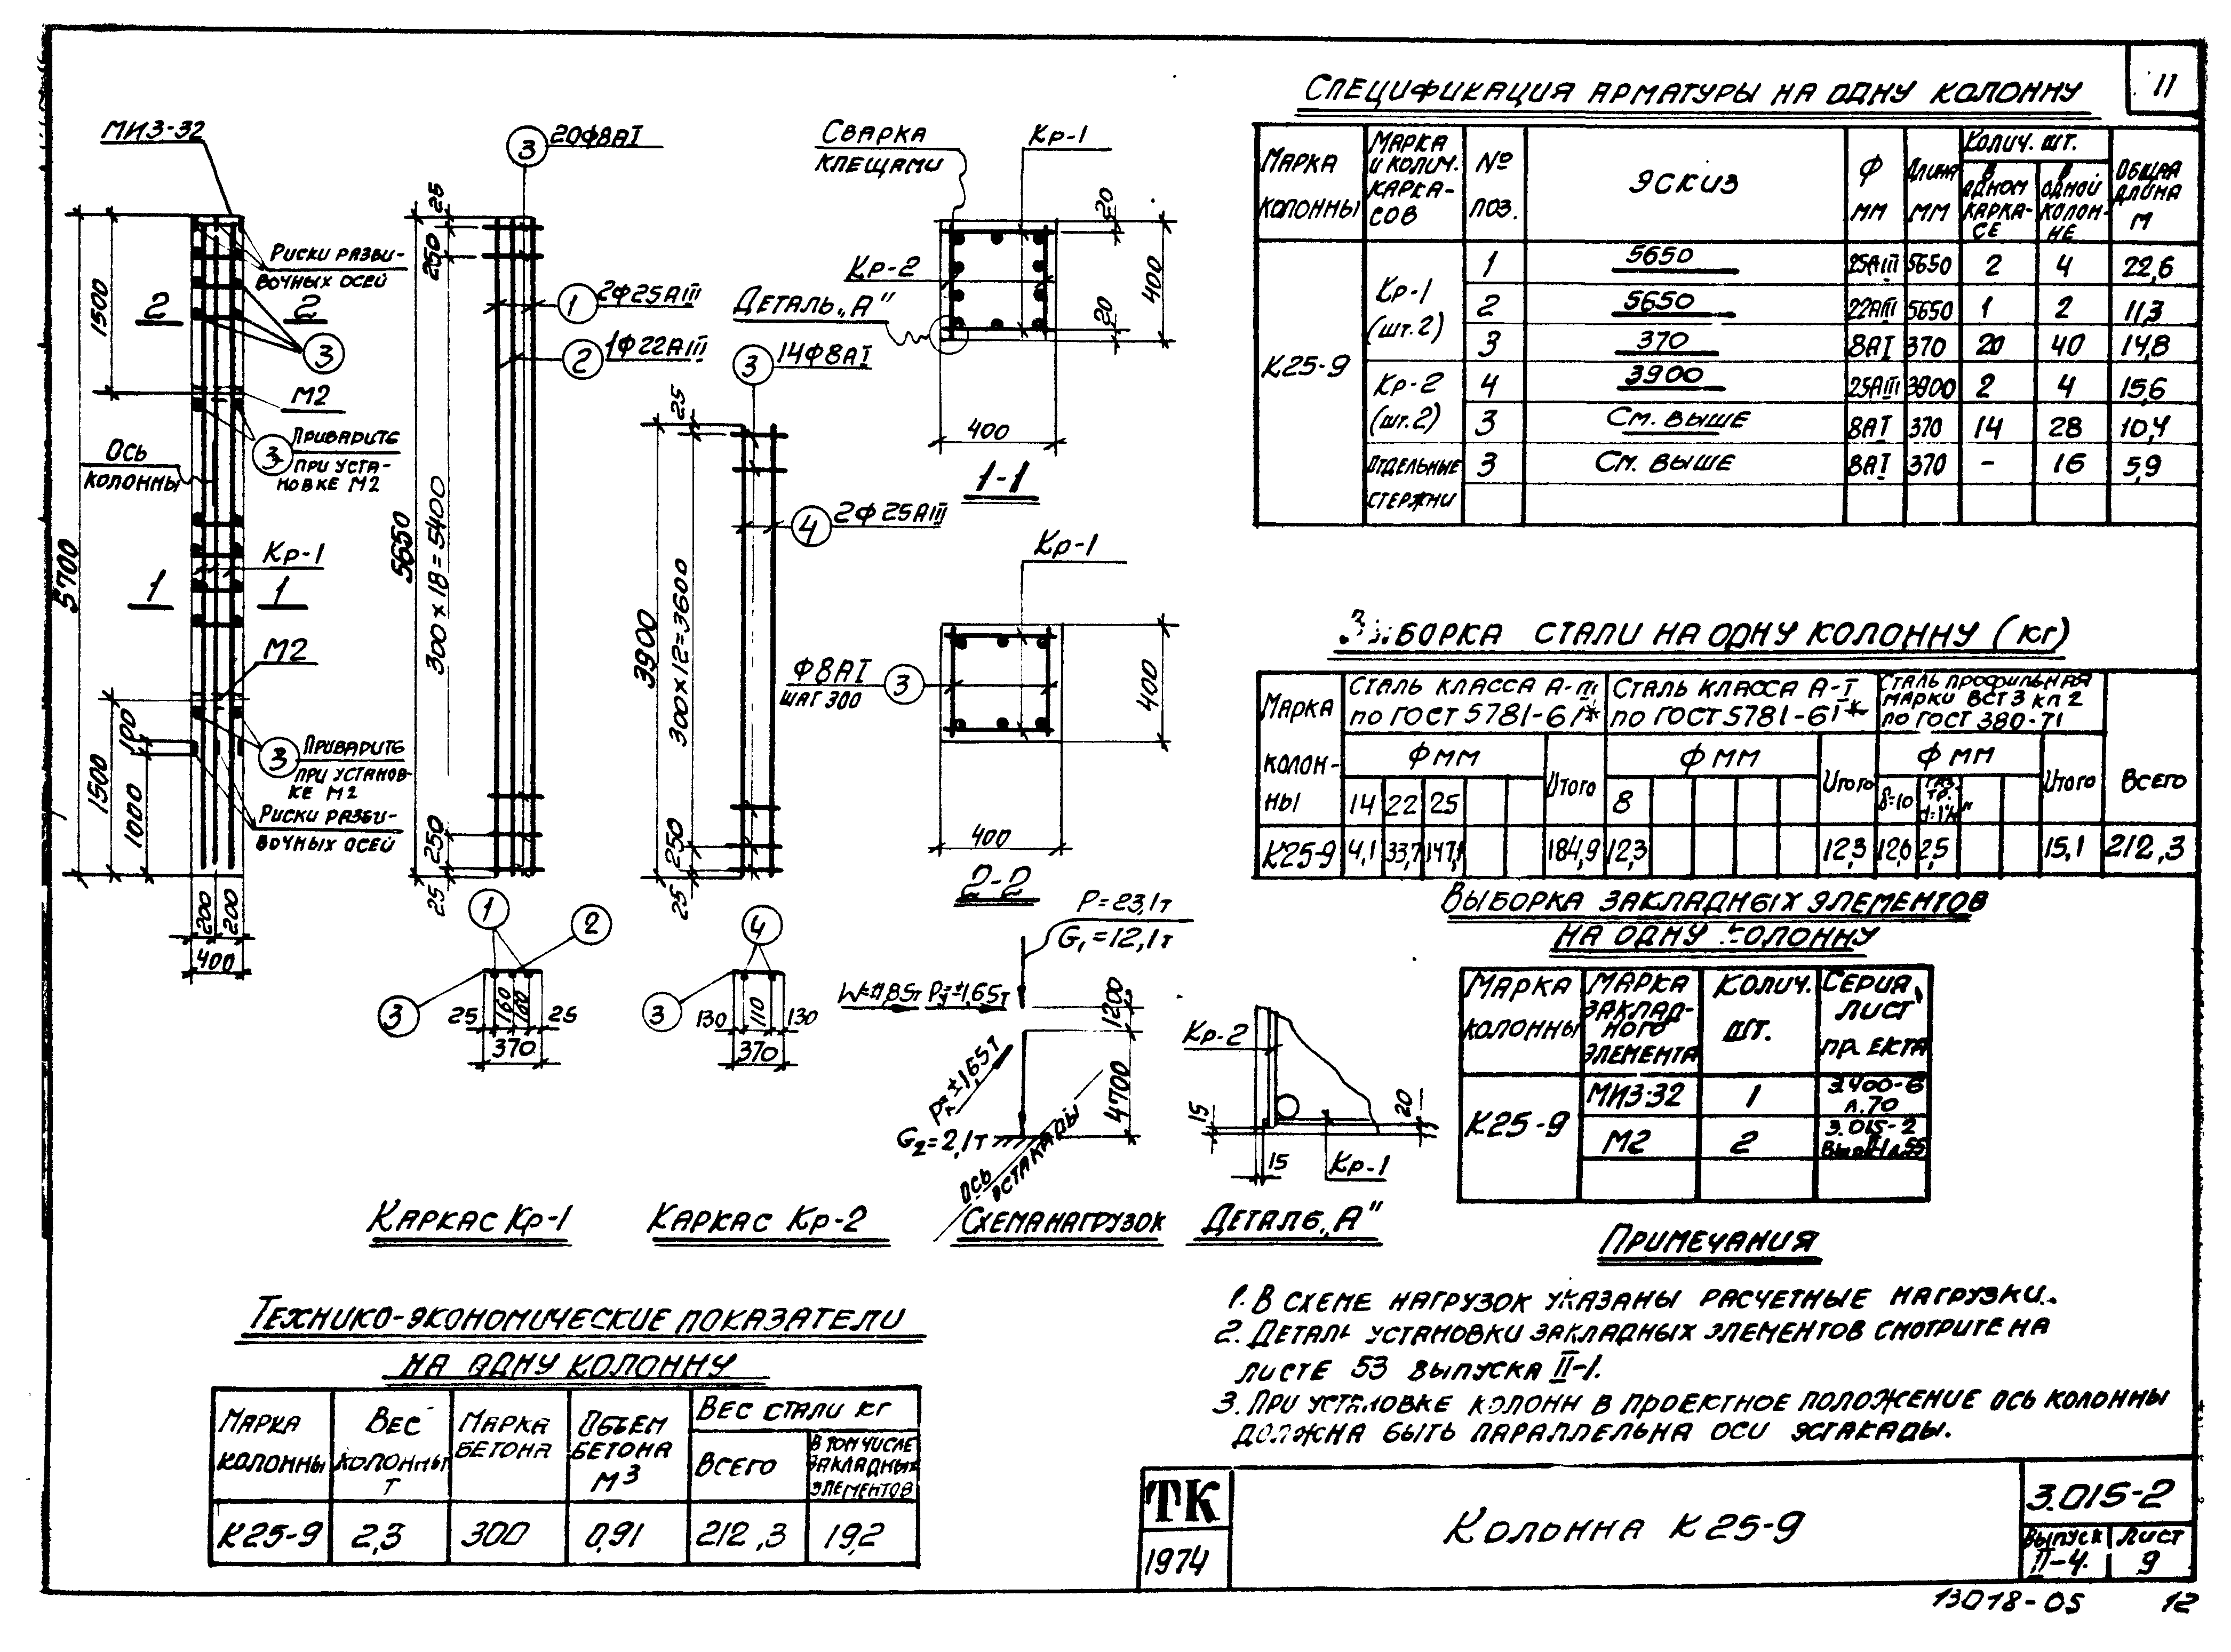 11
МИ3-32
Риски разби-
вочных осей
2 2
3
М2
3 Приварить
при уста-
новке М2
Ось
колонны
Кр-1
1 1
М2
3 Приварить
при установ-
ке М2
Риски разби-
вочных осей
5700
1500
1500
100
1000
200 200
400
3 20Ф8АI
25
250
1 2Ф25АIII
2 1Ф22АIII
5650
300×18=5400
250
25
1 2
3
25 160 160 25
370
Каркас Кр-1
3 14Ф8АI
25
4 2Ф25АIII
3900
300×12=3600
250
25
4
3
130 110 130
370
Каркас Кр-2
Сварка
клещами
Кр-1
Кр-2
Деталь „А"
20
400
20
400
1-1
Кр-1
Ф8АI
шаг 300
3
400
400
2-2
P=23,1т
G₁=12,1т
1200
4700
G₂=2,1т
Ось
эстакады
Схема нагрузок
Кр-2
15
20
15
Кр-1
Деталь „А"
Спецификация арматуры на одну колонну
Марка колонны | Марка и колич. каркасов | № поз. | Эскиз | Ф мм | Длина мм | Колич. шт. | в одном каркасе | в одной колонне | Общая длина м
К25-9 | Кр-1 (шт.2) | 1 | 5650 | 25АIII | 5650 | 2 | 4 | 22,6
2 | 5650 | 22АIII | 5650 | 1 | 2 | 11,3
3 | 370 | 8АI | 370 | 20 | 40 | 14,8
Кр-2 (шт.2) | 4 | 3900 | 25АIII | 3900 | 2 | 4 | 15,6
3 | См. выше | 8АI | 370 | 14 | 28 | 10,4
Отдельные стержни | 3 | См. выше | 8АI | 370 | - | 16 | 5,9
стали на одну колонну (кг)
Марка колонны | Сталь класса А-III по ГОСТ 5781-61* | Сталь класса А-I по ГОСТ 5781-61* | Сталь профильная марки ВСт3кп2 по ГОСТ 380-71 | Всего
Ф мм | Итого | Ф мм | Итого | Ф мм | Итого
14 | 22 | 25 | 8 | δ=10 | газ. тр.
К25-9 | 4,1 | 33,7 | 147,1 | 184,9 | 12,3 | 12,3 | 12,6 | 2,5 | 15,1 | 212,3
Выборка закладных элементов
на одну колонну
Марка колонны | Марка закладного элемента | Колич. шт. | Серия, лист проекта
К25-9 | МИ3-32 | 1 | 3.400-6 л.70
М2 | 2 | 3.015-2 Вып.II-1 л.55
Примечания
1. В схеме нагрузок указаны расчетные нагрузки.
2. Деталь установки закладных элементов смотрите на
листе 53 выпуска II-1.
3. При установке колонн в проектное положение ось колонны
должна быть параллельна оси эстакады.
Технико-экономические показатели
на одну колонну
Марка колонны | Вес колонны т | Марка бетона | Объем бетона м3 | Вес стали кг | Всего | в том числе закладных элементов
К25-9 | 2,3 | 300 | 0,91 | 212,3 | 19,2
ТК
1974
Колонна К25-9
3.015-2
Выпуск II-4
Лист 9
13018-05 12